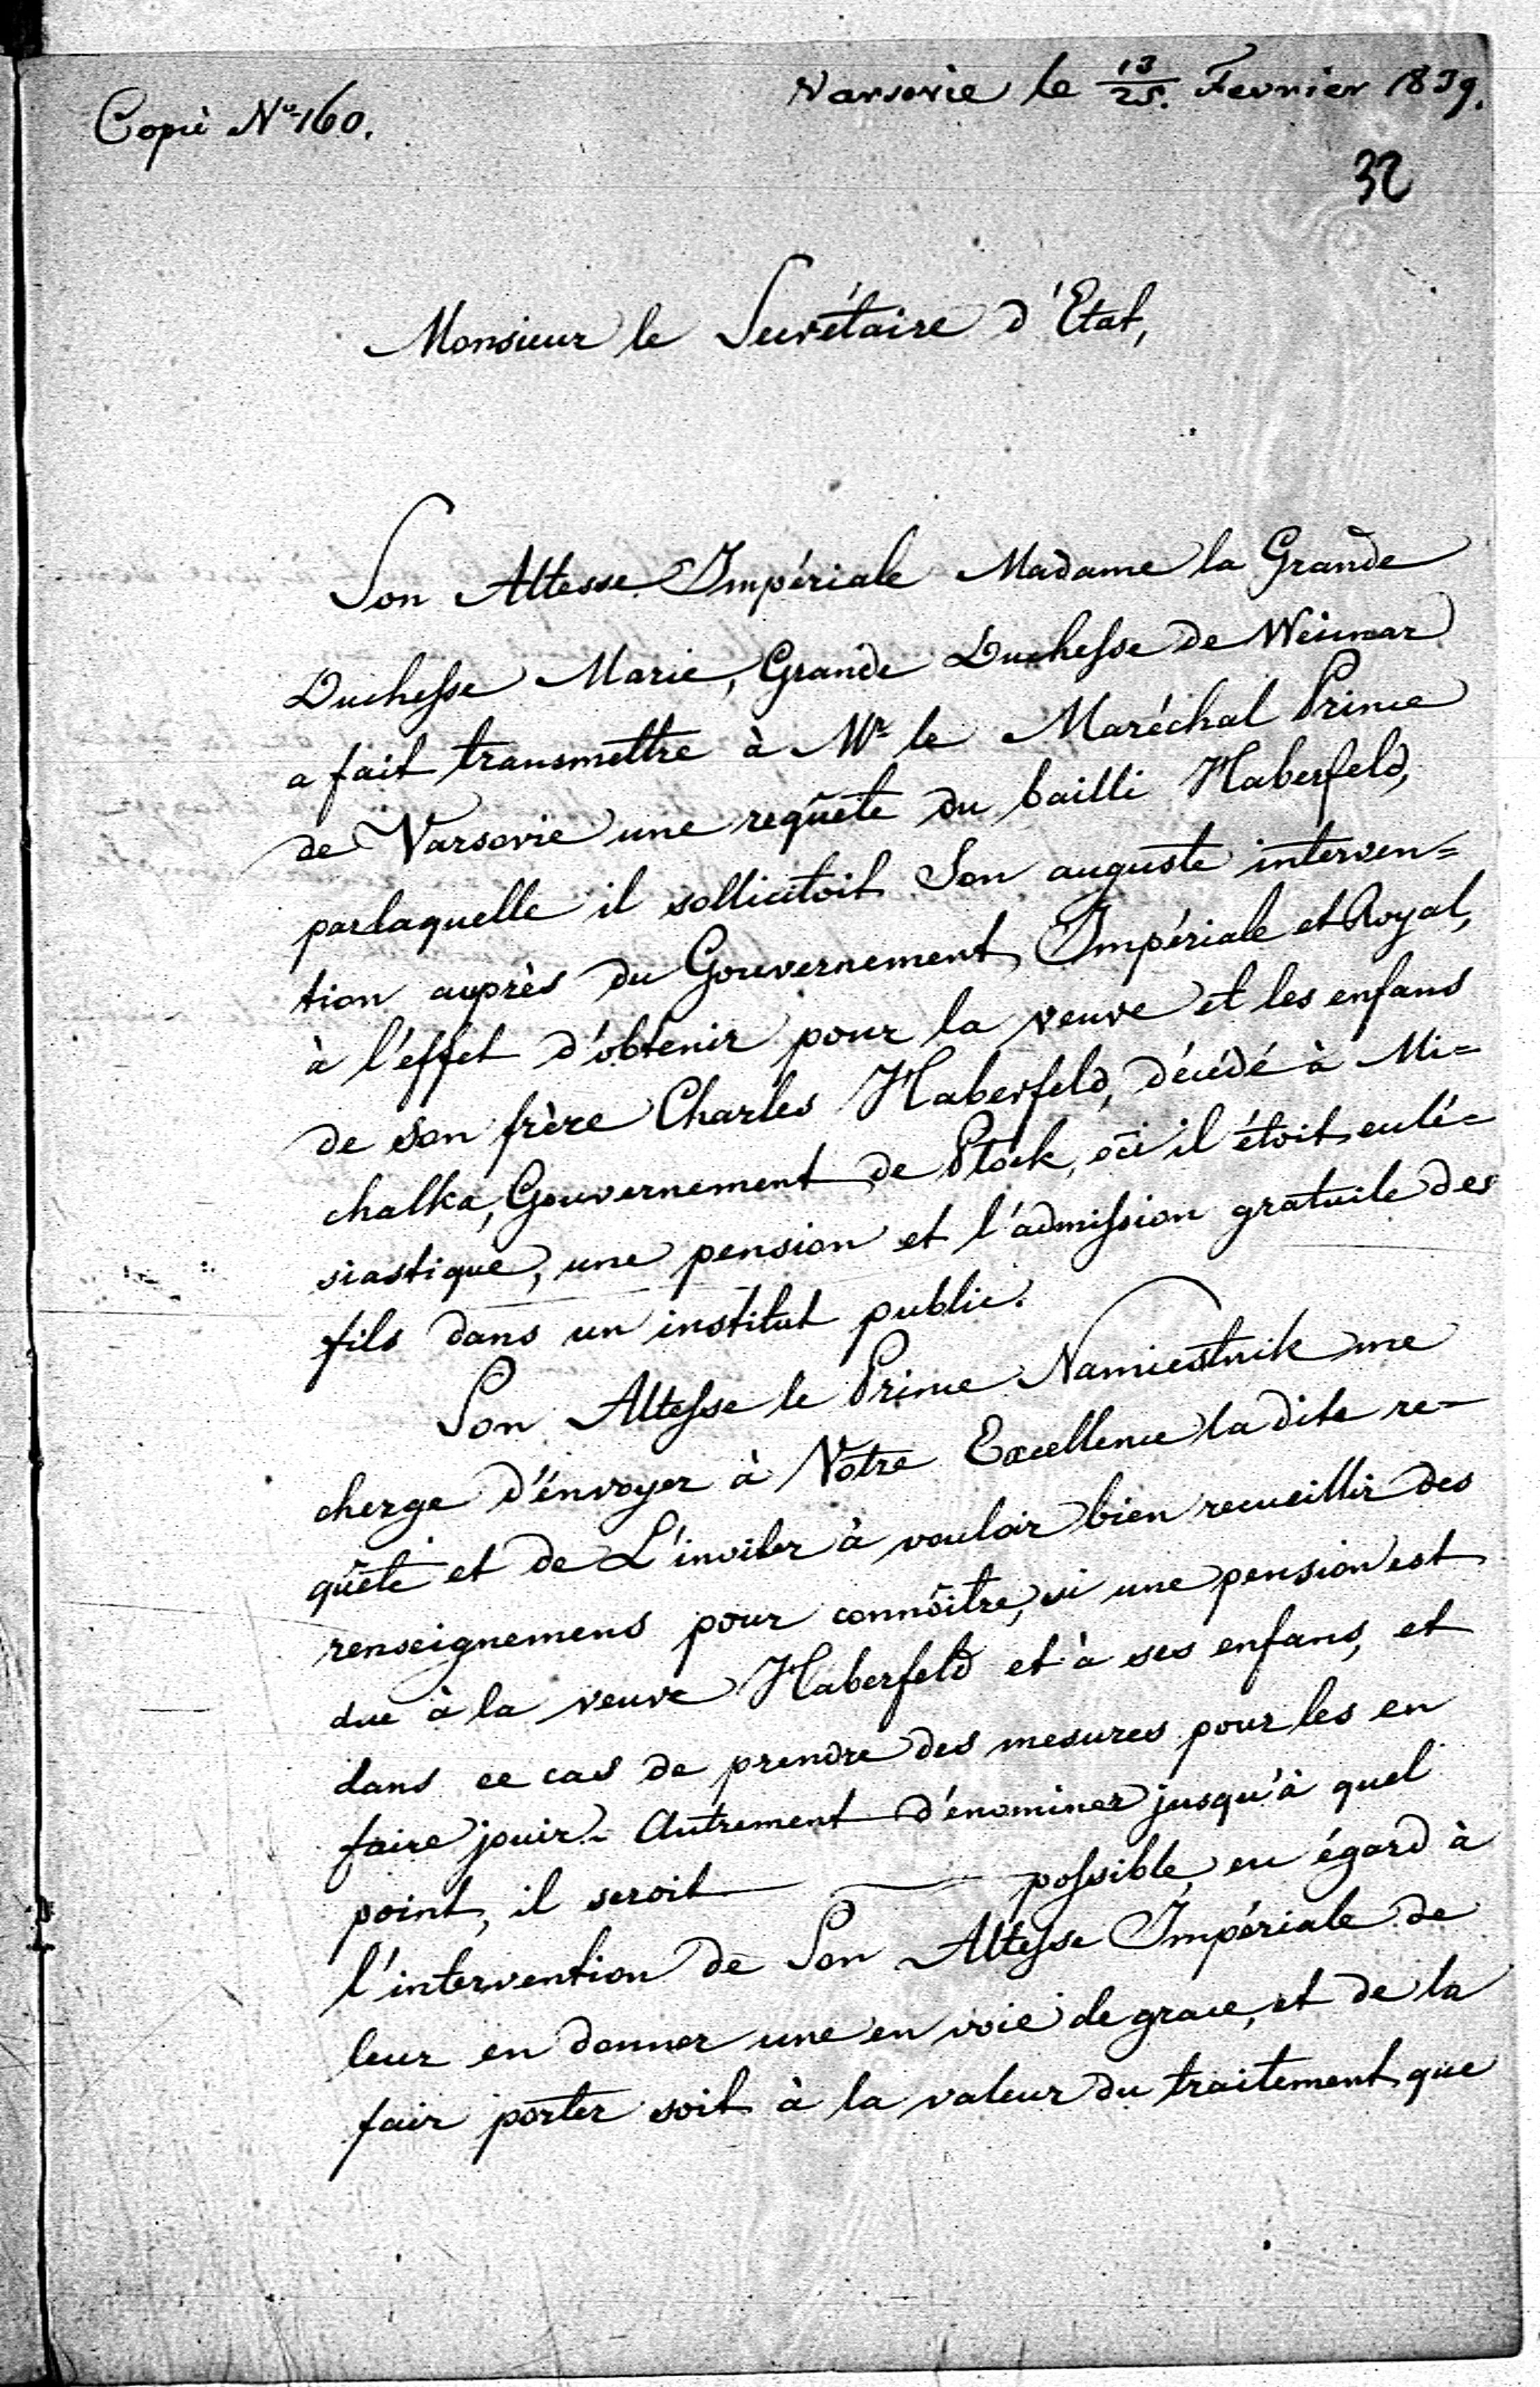 Varsovie le 13/25. Fevrier 1839.
Copié Nº 160.
32
Monsieur le Secrétaire d'Etat,
Son Altesse Impériale Madame la Grande
Duchesse Marie, Grande Duchesse de Weimar
a fait transmettre à Mr le Maréchal Prince
de Varsovie une requête du bailli Haberfeld,
par laquelle il sollicitoit Son auguste interven=
tion auprès du Gouvernement Impériale et Royal,
à l'effet d'obtenir pour la veuve et les enfans
de son frère Charles Haberfeld, décédé à Mi=
chalka, Gouvernement de Plock, où il étoit eclé=
siastique, une pension et l'admission gratuite des
fils dans un institut public.
Son Altesse le Prince Namiestnik me
cherge d'énvoyer à Votre Excellence la dite re=
quête et de L'inviter à vouloir bien recueillir des
renseignemens pour connôitre, si une pension est
due à la veuve Haberfeld et à ses enfans, et
dans ce cas de prendre des mesures pour les en
faire jouir. Autrement d'énominer jusqu'à quel
point, il seroit possible, eu égard à
l'intervention de Son Altesse Impériale de
leur en donner une en voie de grace, et de la
fair porter soit à la valeur du traitement que